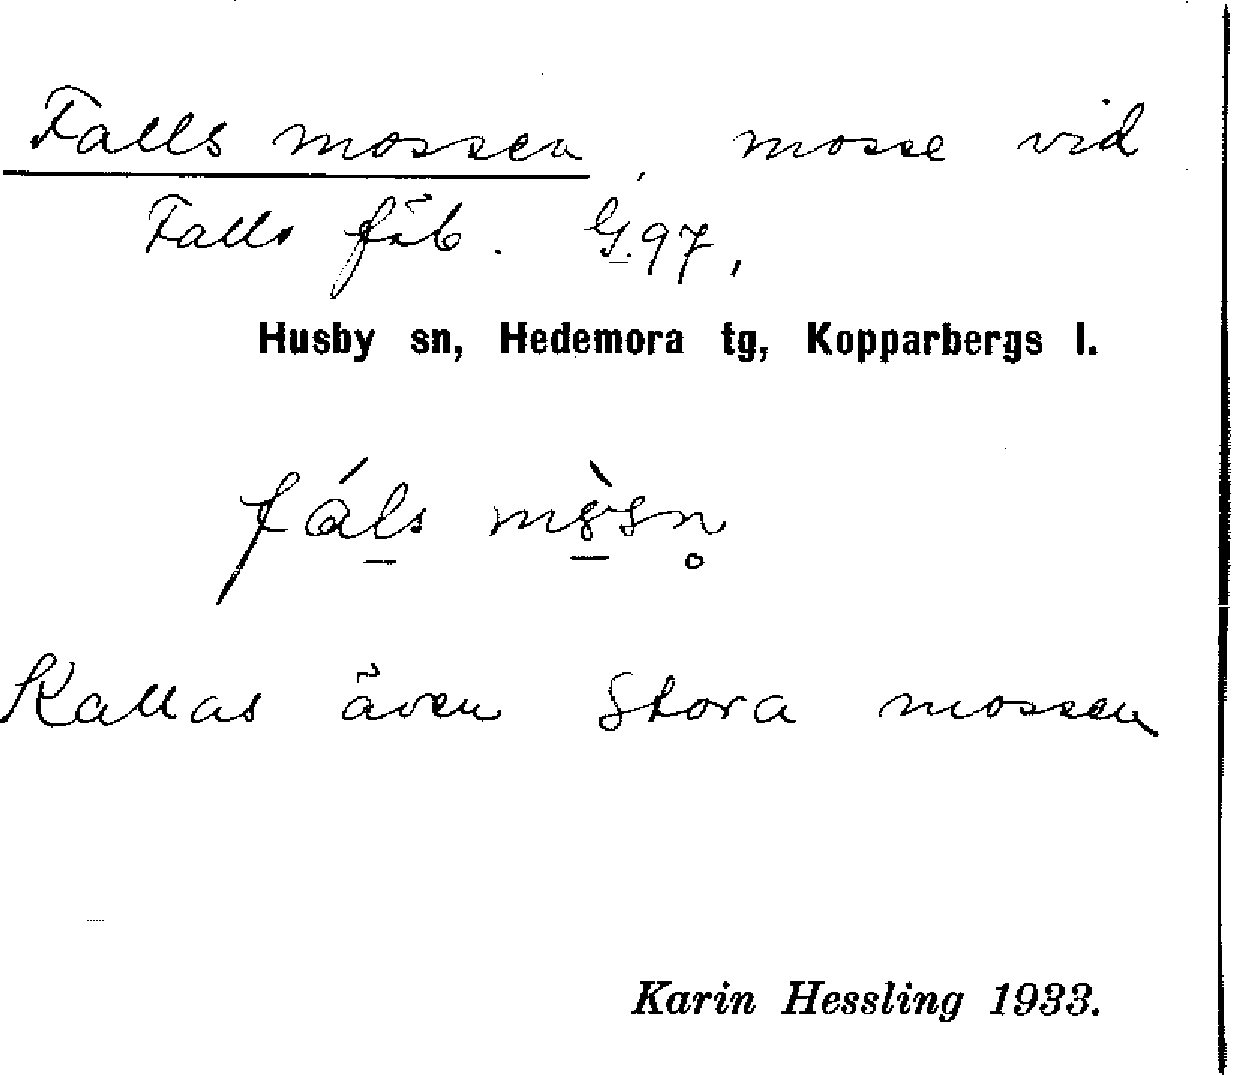 Falls mossen, mosse vid
Falls fäb. G.97,
Husby sn, Hedemora tg, Kopparbergs l.
Kallas även Stora mossen
Karin Hessling 1933.